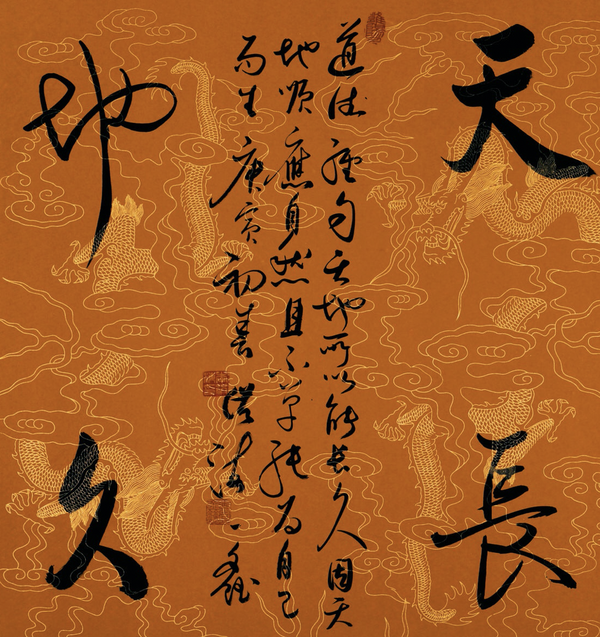 天長
道德經句天地所以能長久因天
地順應自然且不為自己
而生庚寅初春
地久